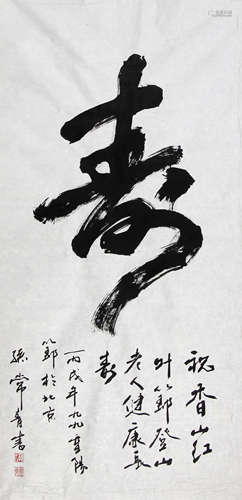 寿
祝香山红
叶节登山
老人健康长
寿
丙戌年九九重阳
节于北京
孙常青书